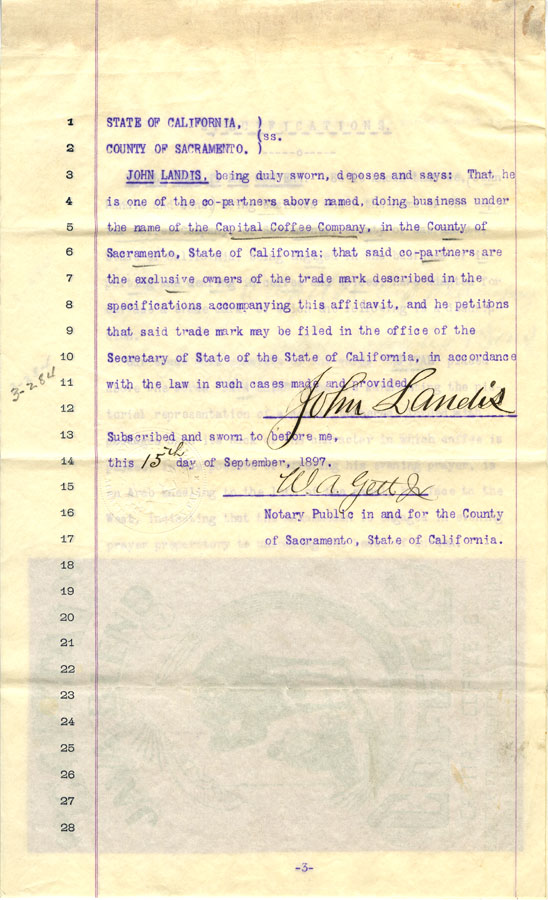 1 STATE OF CALIFORNIA, )
( ss.
2 COUNTY OF SACRAMENTO. )
3 JOHN LANDIS, being duly sworn, deposes and says: That he
4 is one of the co-partners above named, doing business under
5 the name of the Capital Coffee Company, in the County of
6 Sacramento, State of California; that said co-partners are
7 the exclusive owners of the trade mark described in the
8 specifications accompanying this affidavit, and he petitions
9 that said trade mark may be filed in the office of the
10 Secretary of State of the State of California, in accordance
3-2.84
11 with the law in such cases made and provided.
12 John Landis
13 Subscribed and sworn to before me,
14 this 15th day of September, 1897.
15 W A Gett Jr
16 Notary Public in and for the County
17 of Sacramento, State of California.
18
19
20
21
22
23
24
25
26
27
28
-3-